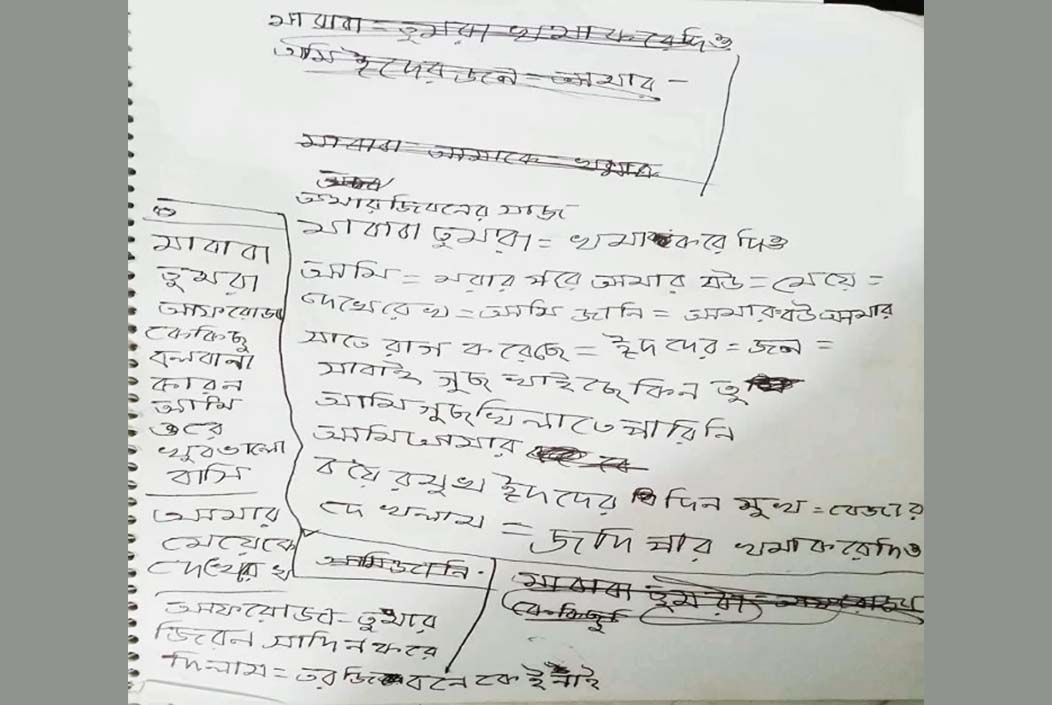 মা বাবা = তুমরা খমা করে দিও
আমি ইদের জনে = আমার -
মা বাবা আমাকে খমার
আমার জিবনের মাজে
মা বাবা তুমরা = খমা করে দিও
আমি = মরার পরে আমার বউ = মেয়ে =
দেখেরেখ = আমি জানি = আমার বউ আমার
সাতে রাগ করেছে = ইদদের = জনে =
সাবাই গুছ খাইছে কিন তু
আমি গুছ খিলাতে পারিনি
আমি আমার
বয়ের মুখ ইদদের দিন মুখ = বেজার
দে খলাম = জদি পার খমা করেদিও
ও
মা বাবা
তুমরা
আফরোজা
কেকিছু
বলবানা
কারন
আমি
ওরে
খুব ভালো
বাসি
আমার
মেয়েকে
দেখের খ
আমি জানি -
মা বাবা = তুমরা = আফরোজা
কে কিছু
আফরোজা = তুমার
জিবন সাদিন করে
দিলাম = তর জি বনে কেই নাই